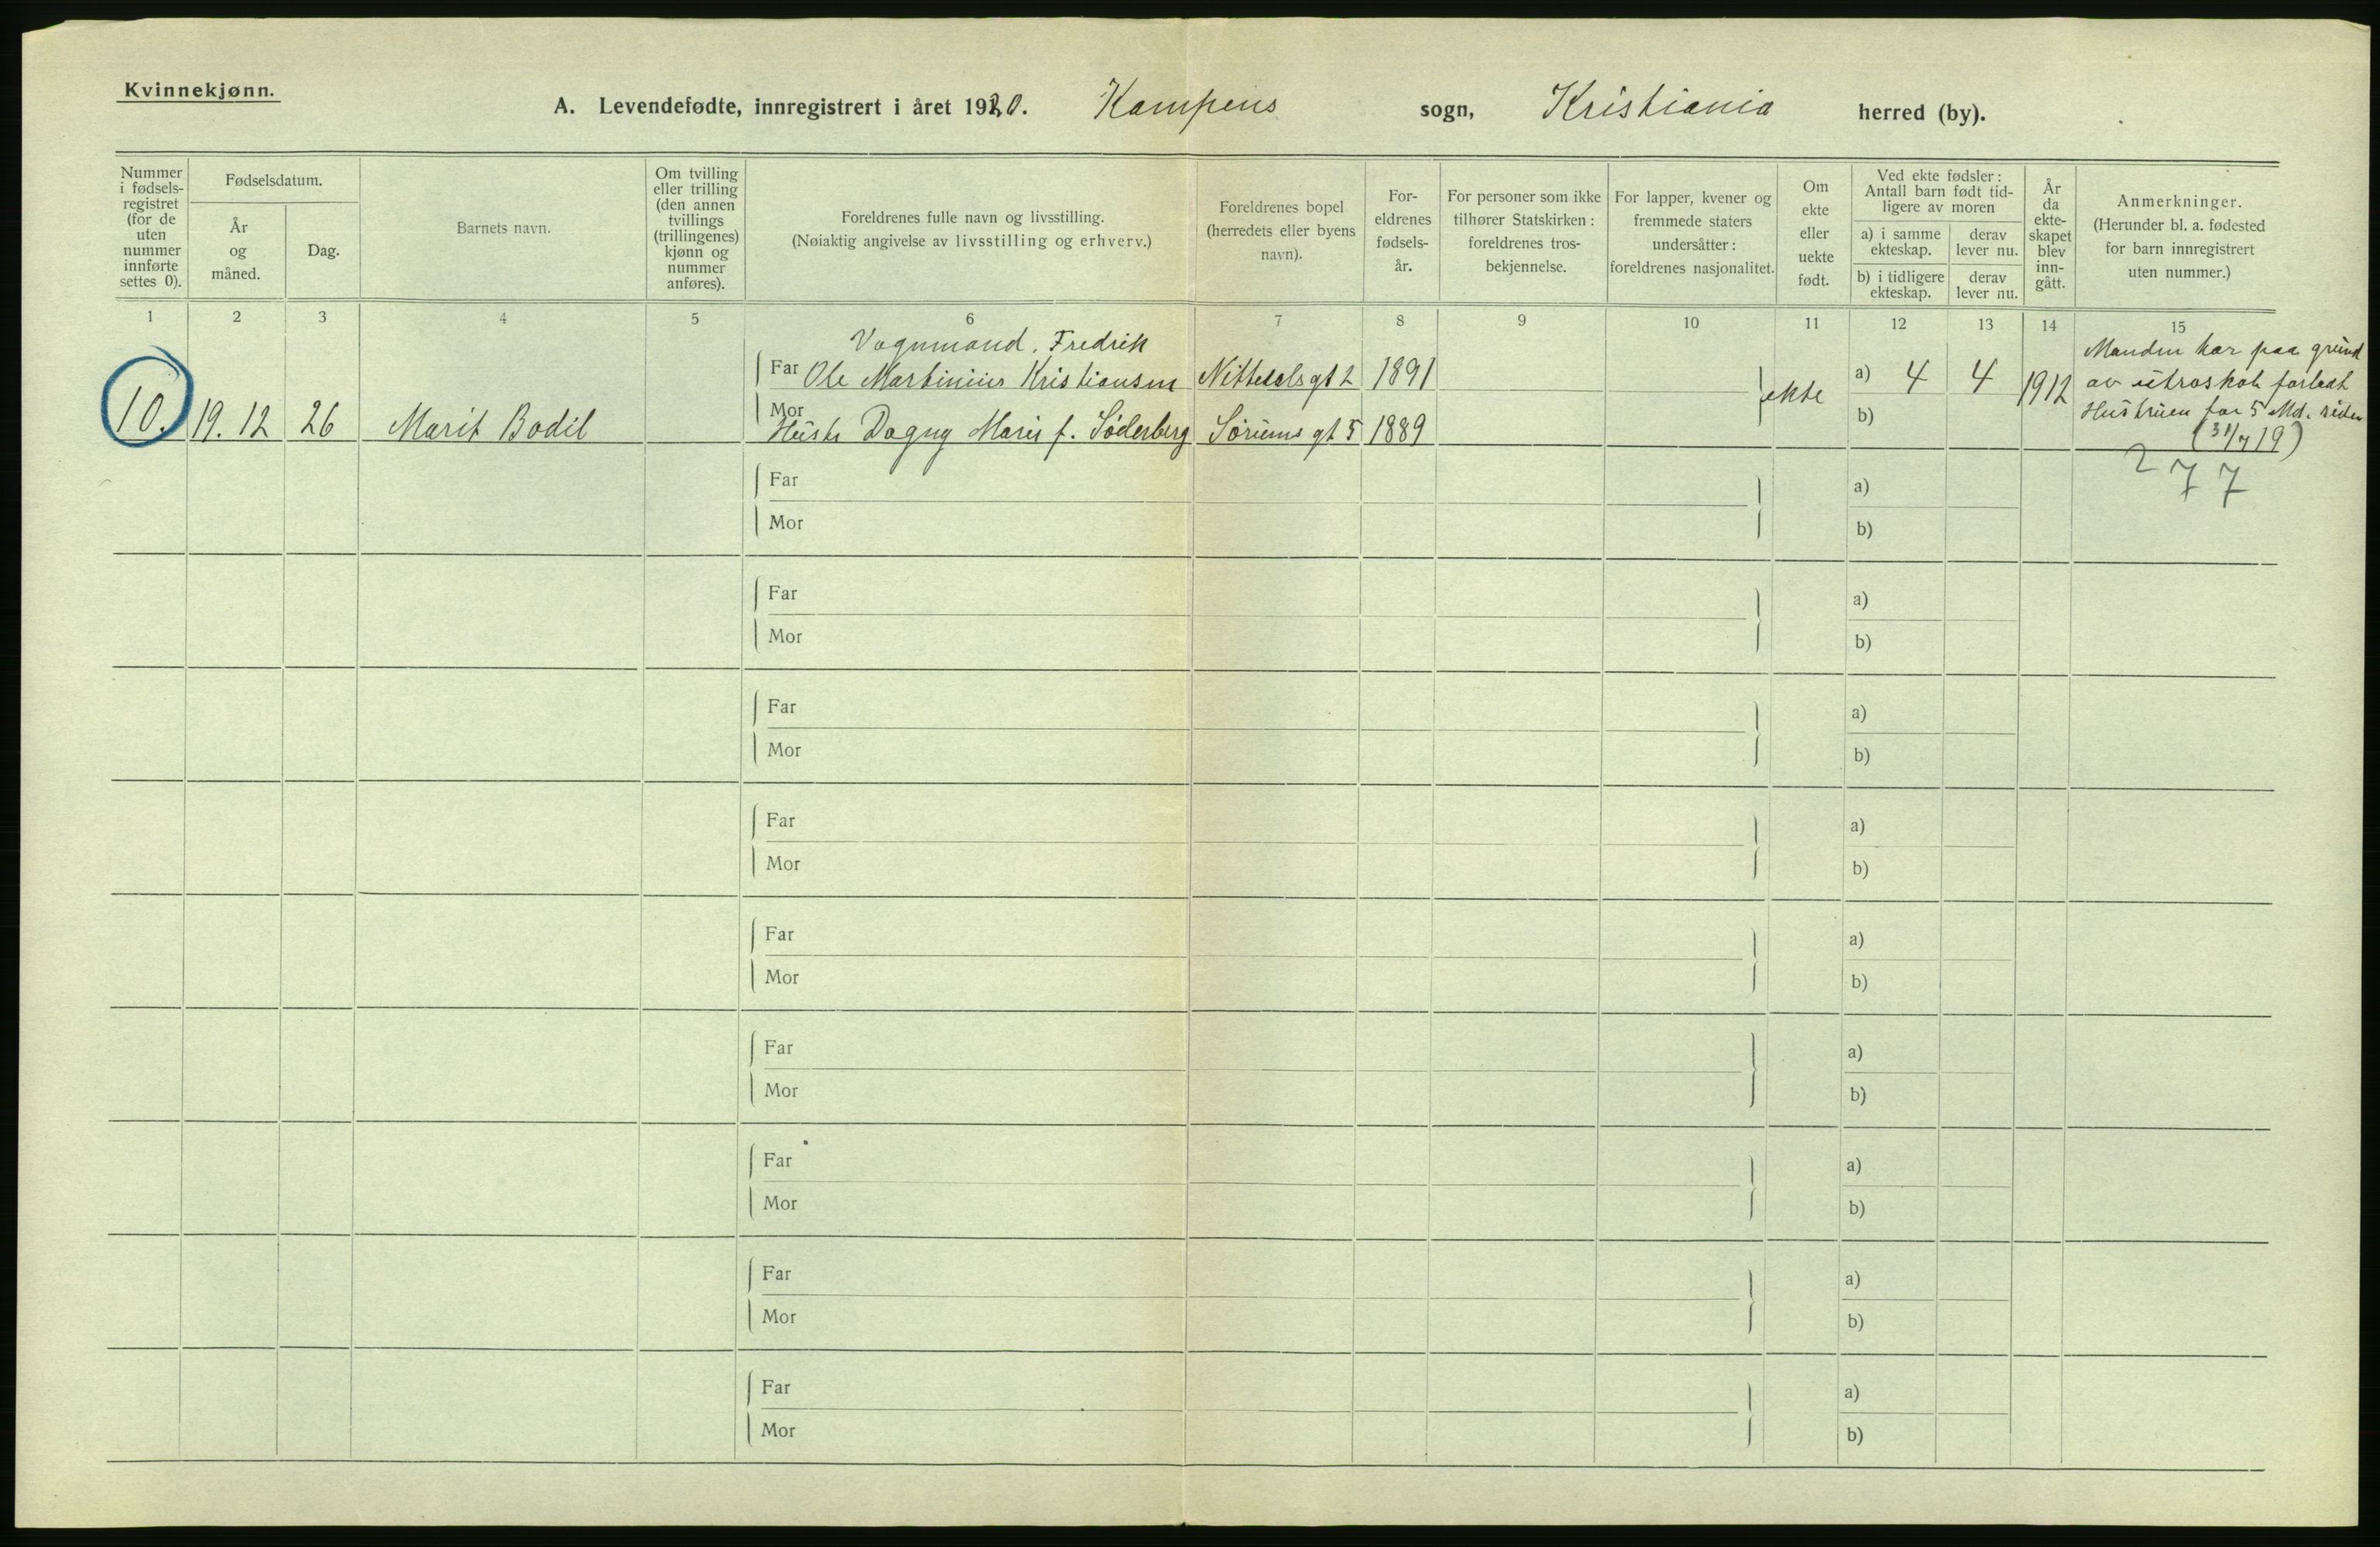 Kvinnekjønn.
A. Levendefødte, innregistrert i året 1920. Kampens sogn, Kristiania herred (by).
Nummer i fødsels-registret (for de uten nummer innførte settes 0).
Fødselsdatum.
År og måned.
Dag.
Barnets navn.
Om tvilling eller trilling (den annen tvillings (trillingenes) kjønn og nummer anføres).
Foreldrenes fulle navn og livsstilling.
(Nøiaktig angivelse av livsstilling og erhverv.)
Foreldrenes bopel (herredets eller byens navn).
For-eldrenes fødsels-år.
For personer som ikke tilhører Statskirken: foreldrenes tros-bekjennelse.
For lapper, kvener og fremmede staters undersåtter: foreldrenes nasjonalitet.
Om ekte eller uekte født.
Ved ekte fødsler: Antall barn født tid-ligere av moren
a) i samme ekteskap.
derav lever nu.
b) i tidligere ekteskap.
derav lever nu.
År da ekte-skapet blev inn-gått.
Anmerkninger.
(Herunder bl. a. fødested for barn innregistrert uten nummer.)
1 2 3 4 5 6 7 8 9 10 11 12 13 14 15
Vognmand. Fredrik
Far Ole Martinius Kristiansen Nittedalsgt 2 1891
10. 19. 12 26 Marit Bodil
Mor Hustr Dagny Marie f. Söderberg Sørums gt 5 1889
ekte
a) 4 4 1912
b)
Manden har paa grund
av utroskab forladt
Hustruen for 5 Md. siden
(31/7 19)
277
Far a)
Mor b)
Far a)
Mor b)
Far a)
Mor b)
Far a)
Mor b)
Far a)
Mor b)
Far a)
Mor b)
Far a)
Mor b)
Far a)
Mor b)
Far a)
Mor b)